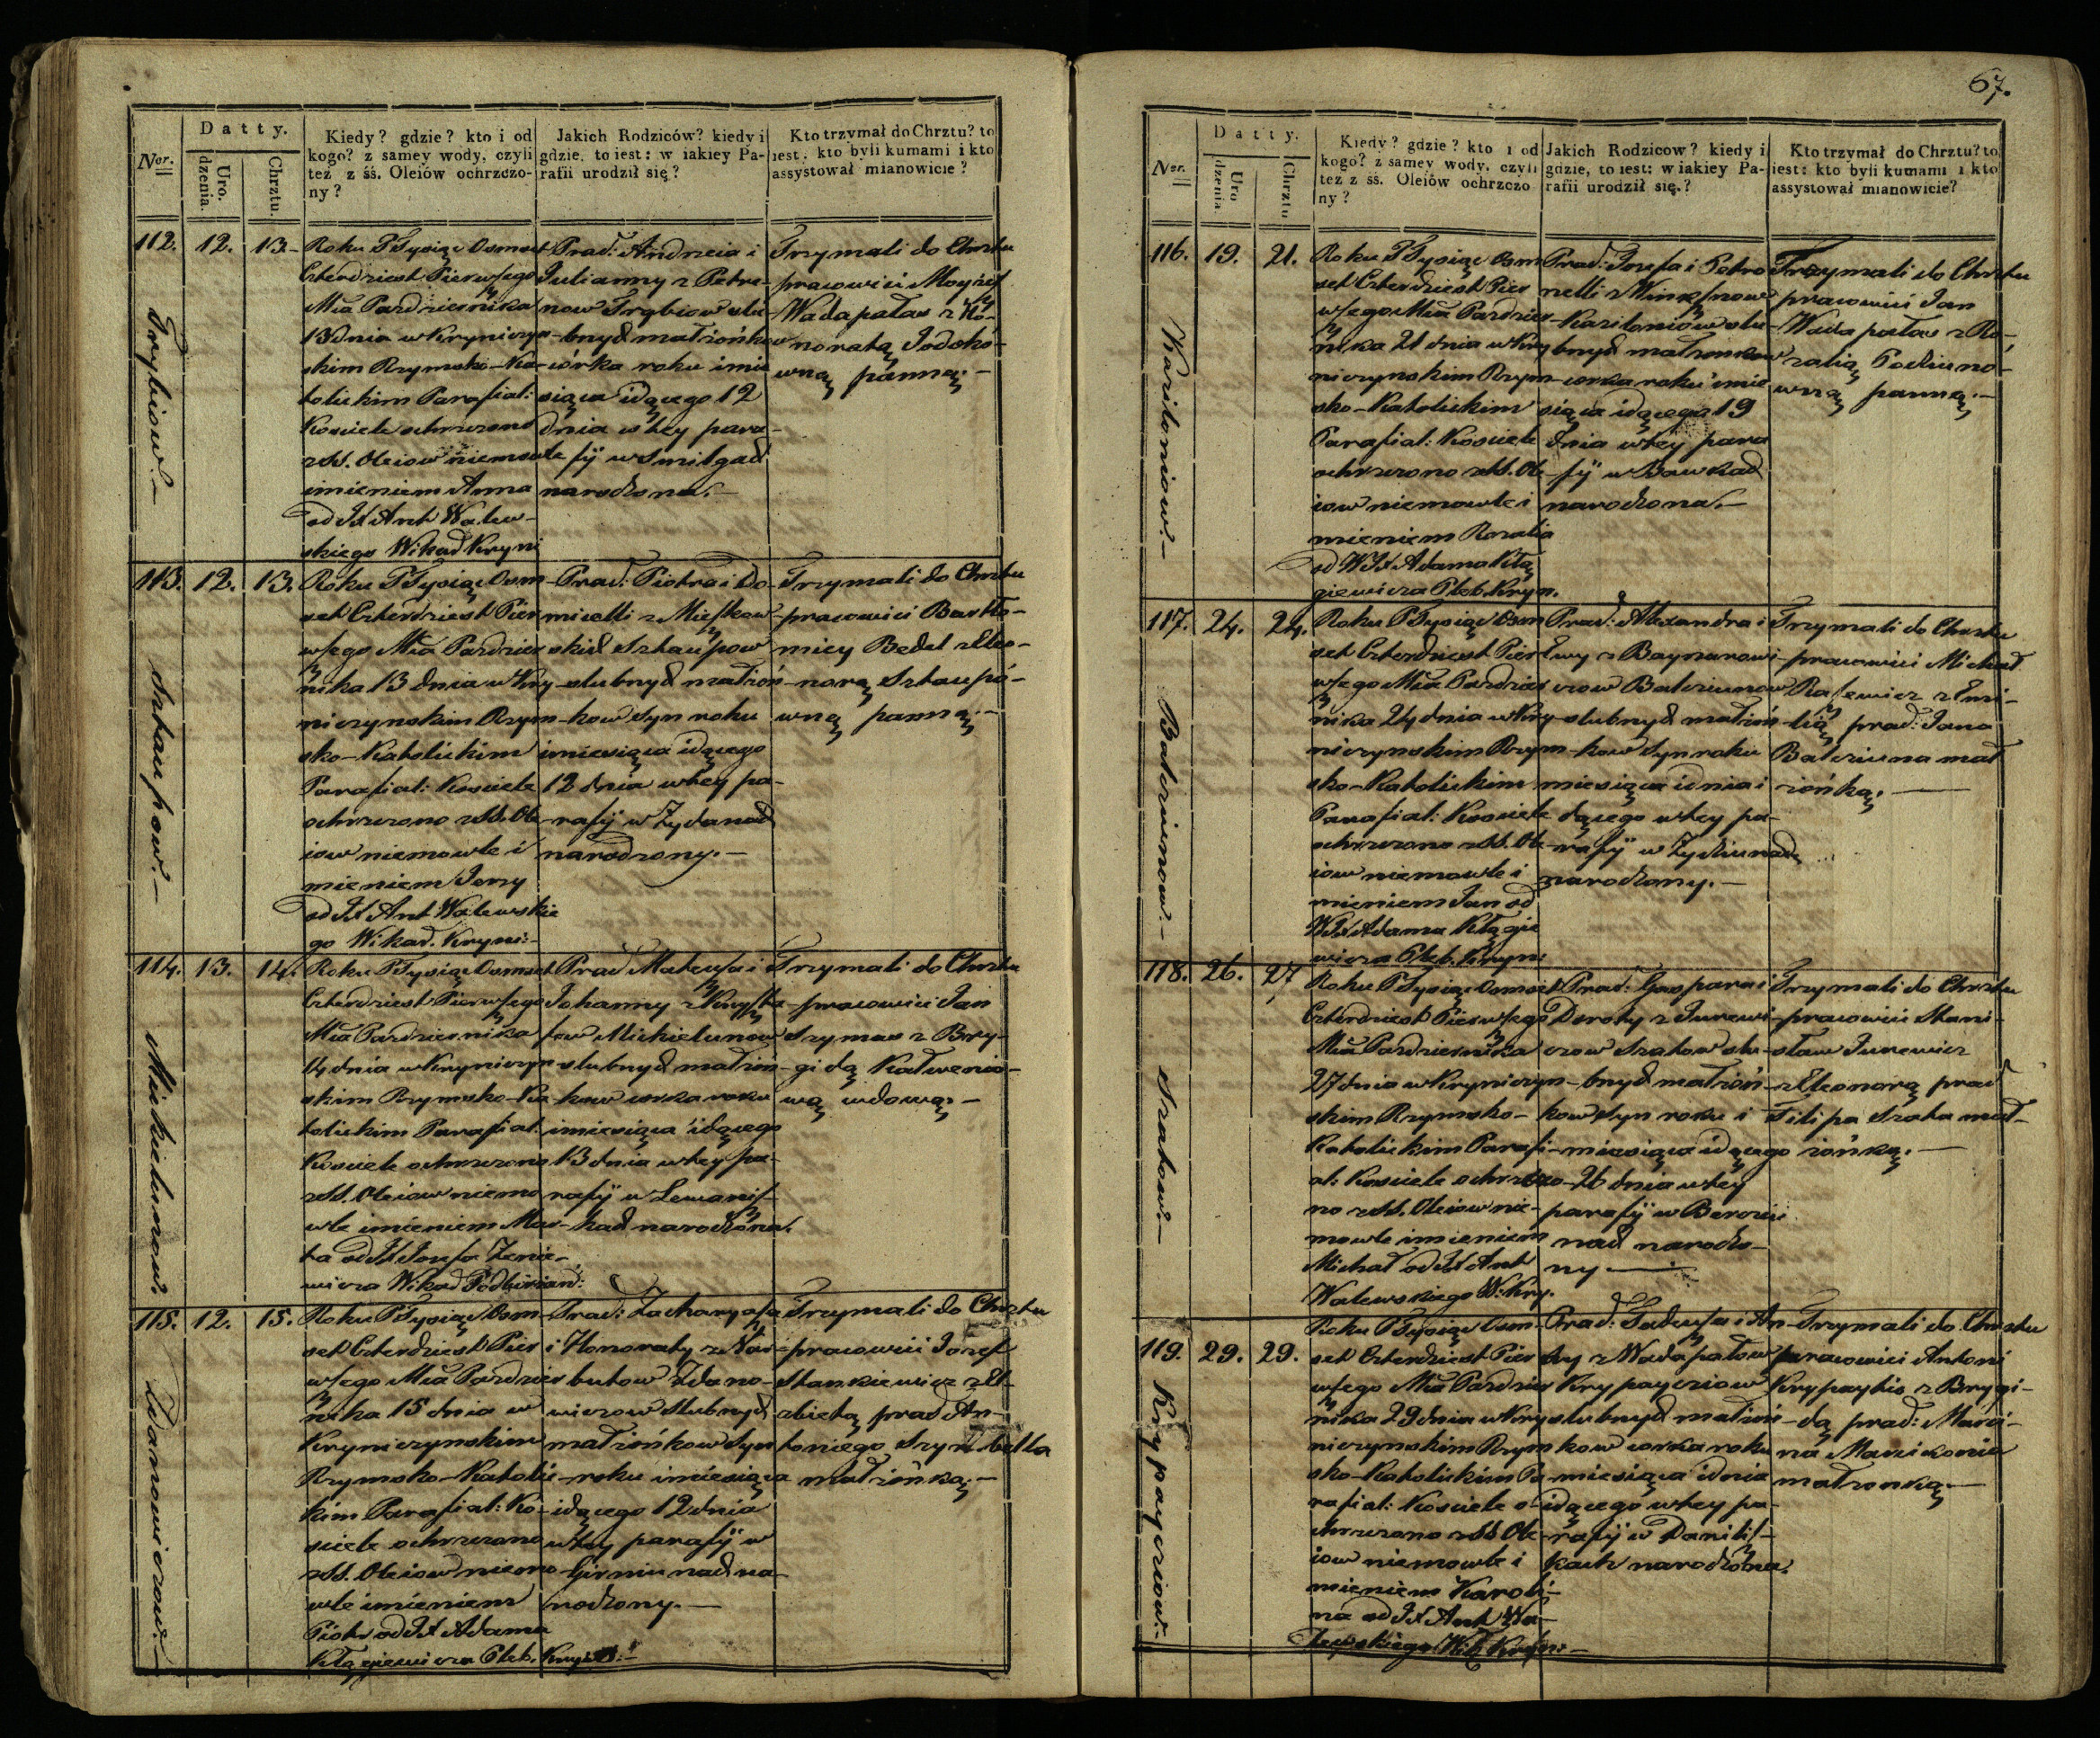 Datty.
Ner.
Uro.
dzenia.
Chrztu.
Kiedy? gdzie? kto i od
kogo? z samey wody, czyli
też z śś. Oleiów ochrzczo-
ny?
Jakich Rodziców? kiedy i
gdzie, to iest: w iakiey Pa-
rafii urodził się?
Kto trzymał do Chrztu? to
iest: kto byli kumami i kto
assystował mianowicie?
112. 12. 13.
Trybiow.
Roku Tysiąc Osmset
Czterdziest Pierwszego
Mca Pazdziernika
13 dnia w Kryniczyn-
skim Rzymsko-Ka-
tolickim Parafial:
Kosciele ochrzczono
z SS. Oleiow niemowle
imieniem Anna
od JX Ant Walew-
skiego Wikar Kryni
Prac: Andrzeia i
Julianny z Petra-
now Trybiow slu-
bnych małżonkow
córka roku i mie
siąca idącego 12
dnia w tey para-
fij w Smilgach
narodzona.
Trzymali do Chrztu
pracowici Moyżesz
Wadapałas z Ho-
noratą Jodoko-
wną panną.
113. 12. 13.
Sztaupow.
Roku Tysiąc Osm-
set Czterdziest Pier
wszego Mca Pazdzier
nika 13 dnia w Kry-
niczynskim Rzym-
sko-Katolickim
Parafial: Kosciele
ochrzczono z SS. Ole
iow niemowle i
mieniem Jerzy
od JX Ant Walewskie
go Wikar. Kryni:
Prac: Piotra i Do-
micelli z Mieszkow-
skich Sztaupow
slubnych małżon-
kow syn roku
i miesiąca idącego
12 dnia w tey pa-
rafij w Żydanach
narodzony.
Trzymali do Chrztu
pracowici Bartło-
miey Bedel z Eleo-
norą Sztaupo-
wną panną.
114. 13. 14.
Mikielunow.
Roku Tysiąc Osmset
Czterdziest Pierwszego
Mca Pazdziernika
14 dnia w Kryniczyn
skim Rzymsko-Ka
tolickim Parafial:
Kosciele ochrzczono
z SS. Oleiow niemo
wle imieniem Mar-
ta od JX Jozefa Zenie-
wicza Wikar Podbirżand:
Prac Mateusza i
Johanny z Kryszta-
fow Mickielunow
slubnych małżon-
kow corka roku
i miesiąca idącego
13 dnia w tey pa-
rafij w Lewanisz-
kach narodzona.
Trzymali do Chrztu
pracowici Jan
Szymas z Bry-
gidą Katwenio-
wą wdową.
115. 12. 15.
Zdanowiczow.
Roku Tysiąc Osm-
set Czterdziest Pier
wszego Mca Pazdzier
nika 15 dnia w
Kryniczynskim
Rzymsko-Katolic-
kim Parafial: Ko-
sciele ochrzczono
z SS. Oleiow niemo
wle imieniem
Piotr od JX Adama
Kłągiewicza Pleb. Kryn:
Prac: Zacharyasza
i Honoraty z Nar-
butow Zdano-
wiczow slubnych
małżonkow syn
roku i miesiąca
idącego 12 dnia
w tey parafij w
Girniunach na-
rodzony.
Trzymali do Chrztu
pracowici Jozef
Stankiewicz z El-
zbietą prac An-
toniego Szymbella
małżonką.
67.
Datty.
Ner.
Uro
dzenia.
Chrztu
Kiedy? gdzie? kto i od
kogo? z samey wody, czyli
też z śś. Oleiów ochrzczo
ny?
Jakich Rodzicow? kiedy i
gdzie, to iest: w iakiey Pa-
rafii urodził się.?
Kto trzymał do Chrztu? to
iest: kto byli kumami i kto
assystował mianowicie?
116. 19. 21.
Kaziloniow.
Roku Tysiąc Osm
set Czterdziest Pier
wszego Mca Pazdzier-
nika 21 dnia w Kry
niczynskim Rzym-
sko-Katolickim
Parafial: Kosciele
ochrzczono z SS. Ole
iow niemowle i
mieniem Rozalia
od WJX Adama Kłą
giewicza Pleb. Kryn.
Prac: Jozefa i Petro
nelli z Winksznow
Kaziloniow slu-
bnych małżonkow
corka roku i mie
siąca idącego 19
dnia w tey para
fij w Bawkach
narodzona.
Trzymali do Chrztu
pracowici Jan
Wada pałas z Ro-
zalią Podiuno-
wną panną.
117. 24. 24.
Bałcziunow.
Roku Tysiąc Osm
set Czterdziest Pier
wszego Mca Pazdzier
nika 24 dnia w Kry-
niczynskim Rzym-
sko-Katolickim
Parafial: Kosciele
ochrzczono z SS. Ole
iow niemowle i
mieniem Jan od
WJX Adama Kłągie
wicza Pleb. Kryn:
Prac: Alexandra i
Ewy z Baynarowi-
czow Balcziunow
slubnych małżon
kow syn roku
miesiąca i dnia i
dącego w tey pa-
rafij w Żydziunach
narodzony.
Trzymali do Chrztu
pracowici Michał
Raszewicz z Emi-
lią prac: Jana
Balcziuna mał
żonką.
118. 26. 27
Szatow.
Roku Tysiąc Osmset
Czterdziest Pierwszego
Mca Pazdziernika
27 dnia w Kryniczyn-
skim Rzymsko-
Katolickim Parafi-
al: Kosciele ochrzczo-
no z SS. Oleiow nie-
mowle imieniem
Michał od JX Ant
Walewskiego W. Kry.
Prac: Gaspara i
Doroty z Jurewi-
czow Szatow slu-
bnych małżon-
kow syn roku i
miesiąca idącego
26 dnia w tey
parafij w Berozii
nach narodzo-
ny
Trzymali do Chrztu
pracowici Stani-
sław Jurewicz
z Eleonorą prac
Filipa Szata mał-
żonką.
119. 29. 29.
Krypayciow.
Roku Tysiąc Osm-
set Czterdziest Pier
wszego Mca Pazdzier
nika 29 dnia w Kry
niczynskim Rzym
sko-Katolickim Pa-
rafial: Kosciele o-
chrzczono z SS Ole-
iow niemowle i
mieniem Karoli-
na od JX Ant Wa-
lewskiego Wik Kryn:
Prac: Tadeusza i An-
ny z Wadapałow
Krypayciow
slubnych małżon-
kow corka roku
miesiąca i dnia
idącego w tey pa-
rafij w Danilisz-
kach narodzona.
Trzymali do Chrztu
pracowici Antoni
Krypaytis z Brygi-
dą prac: Marci-
na Macikonia
małżonką.